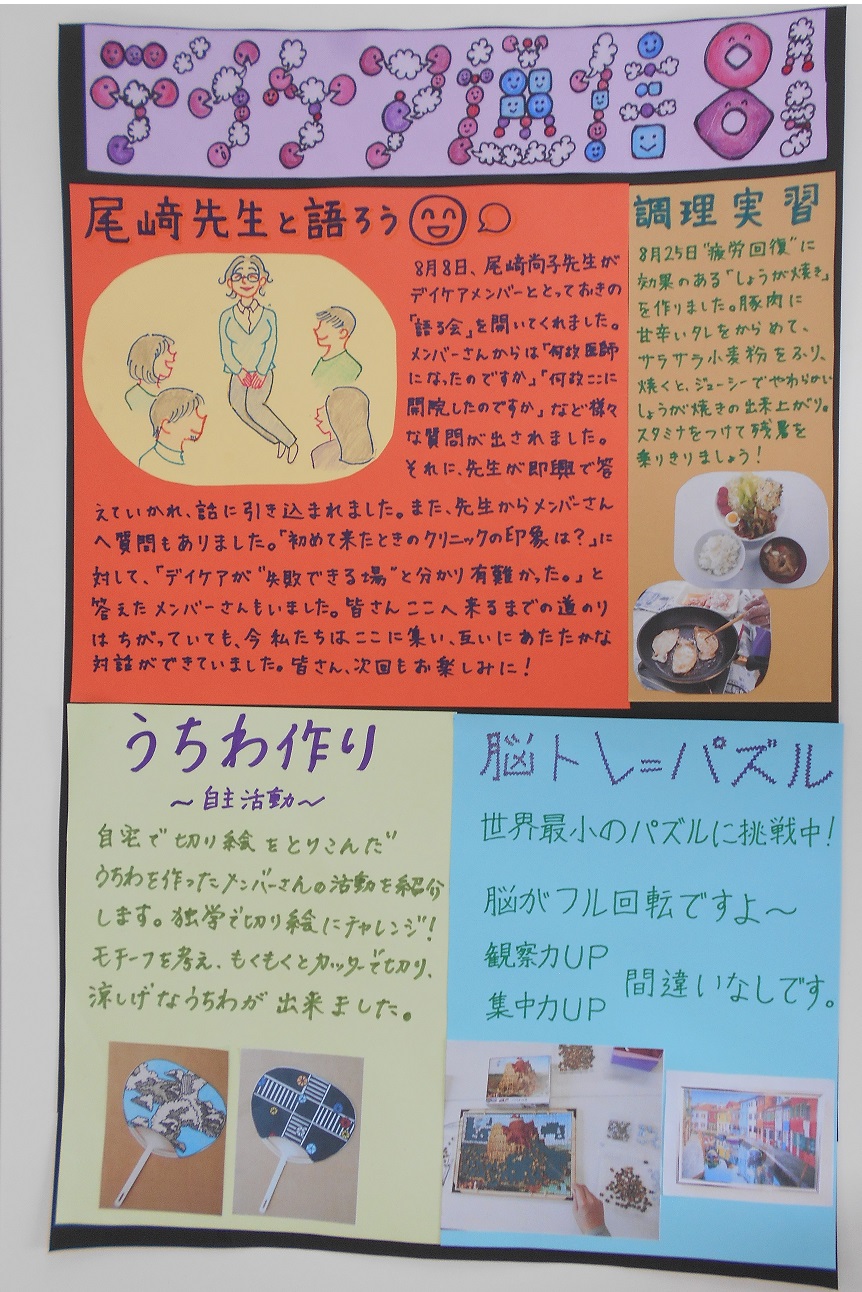 デイケア通信8月号
尾﨑先生と語ろう
8月8日、尾﨑尚子先生が
デイケアメンバーととっておきの
「語る会」を開いてくれました。
メンバーさんからは「何故医師
になったのですか」「何故ここに
開院したのですか」など様々
な質問が出されました。
それに、先生が即興で答
えていかれ、話に引き込まれました。また、先生からメンバーさん
へ質問もありました。「初めて来たときのクリニックの印象は?」に
対して、「デイケアが"失敗できる場"と分かり有難かった。」と
答えたメンバーさんもいました。皆さんここへ来るまでの道のり
はちがっていても、今私たちはここに集い、互いにあたたかな
対話ができていました。皆さん、次回もお楽しみに!
調理実習
8月25日"疲労回復"に
効果のある「しょうが焼き」
を作りました。豚肉に
甘辛いタレをからめて、
サラサラ小麦粉をふり、
焼くと、ジューシーでやわらかい
しょうが焼きの出来上がり。
スタミナをつけて残暑を
乗りきりましょう!
うちわ作り
～自主活動～
自宅で切り絵をとりこんだ
うちわを作ったメンバーさんの活動を紹介
します。独学で切り絵にチャレンジ!
モチーフを考え、もくもくとカッターで切り、
涼しげなうちわが出来ました。
脳トレ=パズル
世界最小のパズルに挑戦中!
脳がフル回転ですよ～
観察力UP
集中力UP
間違いなしです。